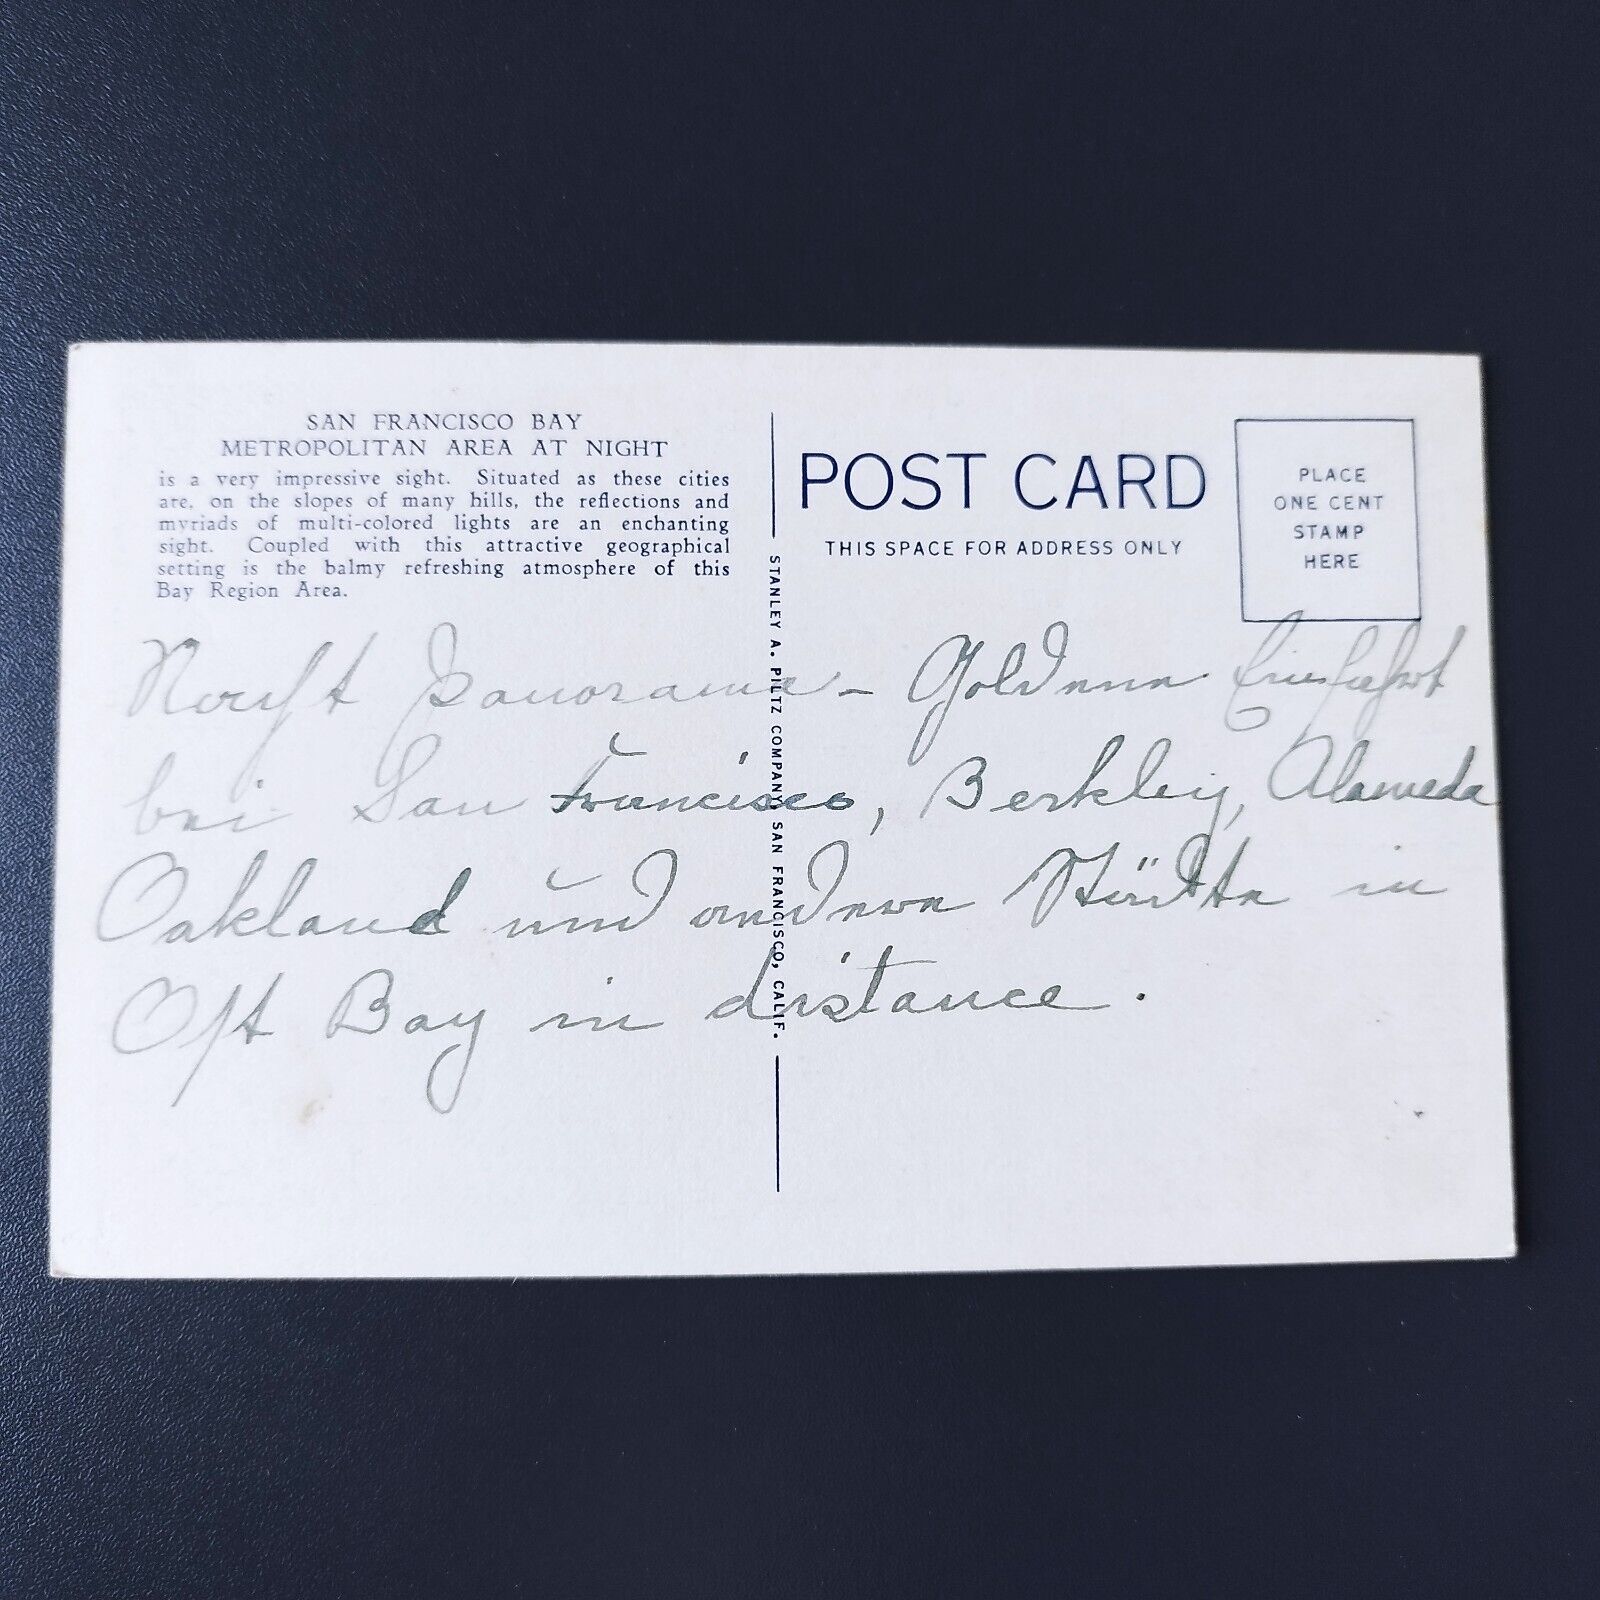 SAN FRANCISCO BAY
METROPOLITAN AREA AT NIGHT
is a very impressive sight. Situated as these cities
are, on the slopes of many hills, the reflections and
myriads of multi-colored lights are an enchanting
sight. Coupled with this attractive geographical
setting is the balmy refreshing atmosphere of this
Bay Region Area.
POST CARD
THIS SPACE FOR ADDRESS ONLY
PLACE
ONE CENT
STAMP
HERE
STANLEY A. PILTZ COMPANY, SAN FRANCISCO, CALIF.
Nacht Panorama – Goldene Einfahrt
bei San Francisco, Berkley, Alameda
Oakland und andere Städte in
Ost Bay in distance.